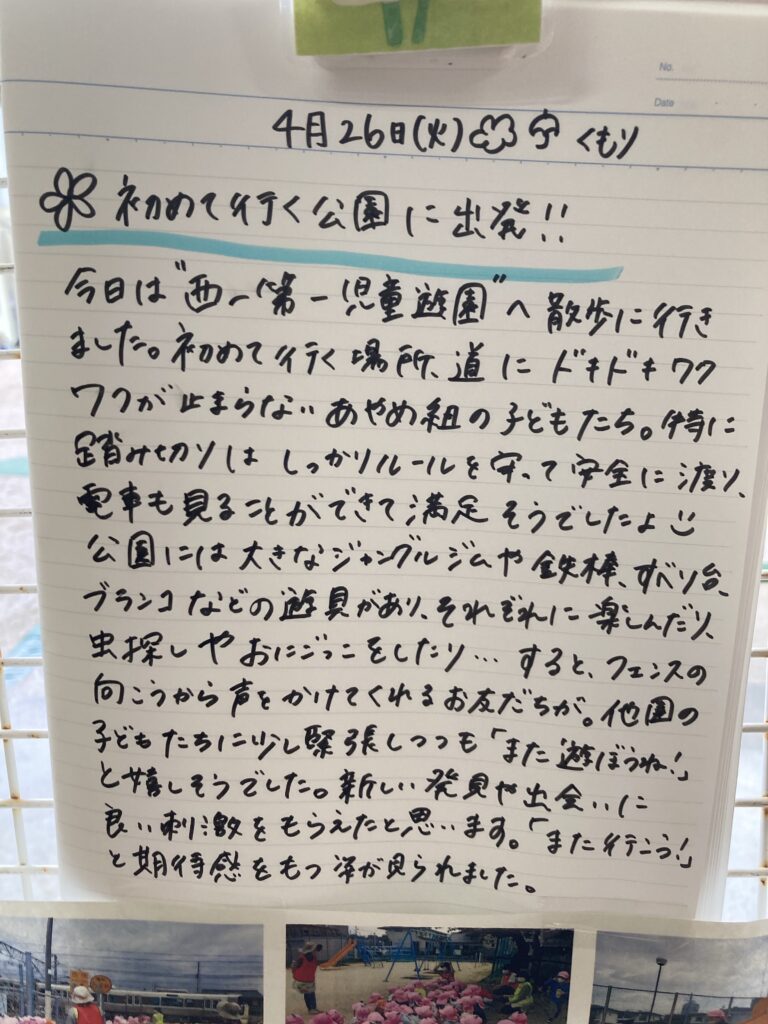 No.
Date
4月26日(火) くもり
初めて行く公園に出発!!
今日は"西ノ第一児童遊園"へ散歩に行き
ました。初めて行く場所、道にドキドキワク
ワクが止まらないあやめ組の子どもたち。特に
踏み切りはしっかりルールを守って安全に渡り、
電車も見ることができて満足そうでしたよ
公園には大きなジャングルジムや鉄棒、すべり台、
ブランコなどの遊具があり、それぞれに楽しんだり、
虫探しやおにごっこをしたり…すると、フェンスの
向こうから声をかけてくれるお友だちが。他園の
子どもたちに少し緊張しつつも「また遊ぼうね!」
と嬉しそうでした。新しい発見や出会いに
良い刺激をもらえたと思います。「また行こう!」
と期待感をもつ姿が見られました。